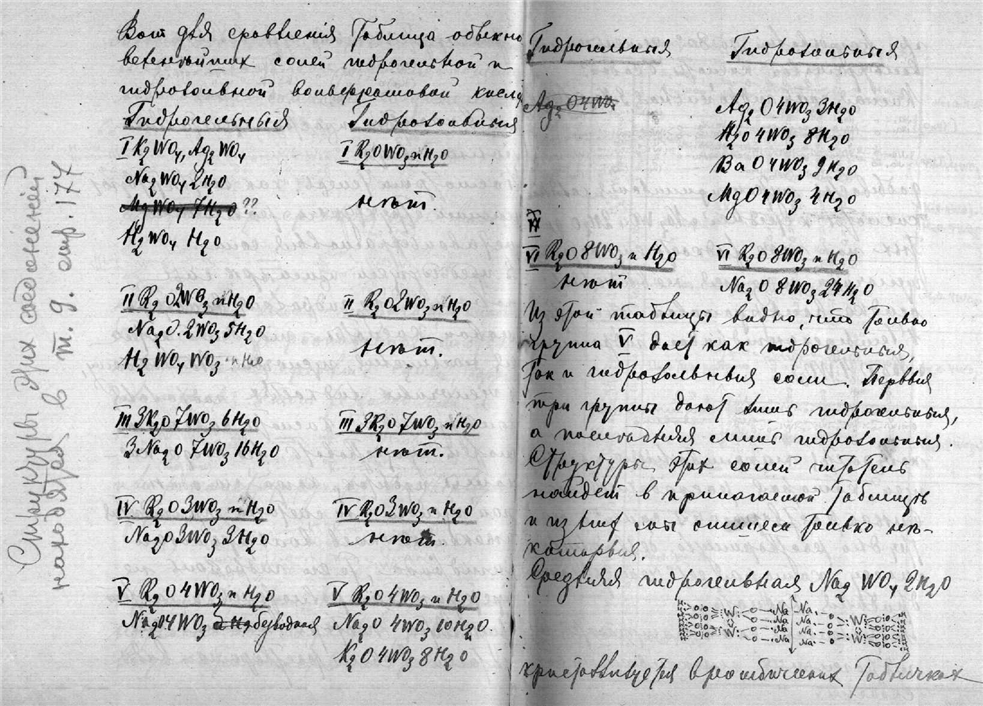 Вот для сравненія Таблица обыкно
веннѣйших солей гидрогельной и
гидрозольной вольфрамовой кисло
Гидрогельныя Гидрозольныя
I K2WO4, Ag2WO4 I R2O WO3 nH2O
Na2WO4 2H2O нѣт
MgWO4 7H2O ??
H2WO4 H2O
II R2O 2WO3 nH2O II R2O 2WO3 nH2O
Na2O. 2WO3 5H2O нѣт.
H2WO4 WO3 nH2O
III 3R2O 7WO3 6H2O III 3R2O 7WO3 nH2O
3Na2O 7WO3 16H2O нѣт.
IV R2O 3WO3 nH2O IV R2O 3WO3 nH2O
Na2O 3WO3 3H2O нѣт.
V R2O 4WO3 nH2O V R2O 4WO3 nH2O
Na2O 4WO3 безводная Na2O 4WO3 10H2O
K2O 4WO3 8H2O
Структуры этих соединеній
находятся в т. 9. стр. 177
Гидрогельныя Гидрозольныя
Ag2O 4WO3 Ag2O 4WO3 3H2O
H2O 4WO3 8H2O
BaO 4WO3 9H2O
MgO 4WO3 4H2O
VI R2O 8WO3 nH2O VI R2O 8WO3 nH2O
нѣт Na2O 8WO3 24H2O
Из этой таблицы видно, что только
группа V дает как гидрогельныя,
так и гидрозольныя соли. Первыя
три группы дают лишь гидрогельныя,
а послѣдняя лишь гидрозольныя.
Структуры этих солей читатель
найдет в прилагаемой Таблицѣ
и из них мы опишем только нѣ-
которыя.
Средняя гидрогельная Na2WO4 2H2O
кристаллизуется в ромбических Табличках